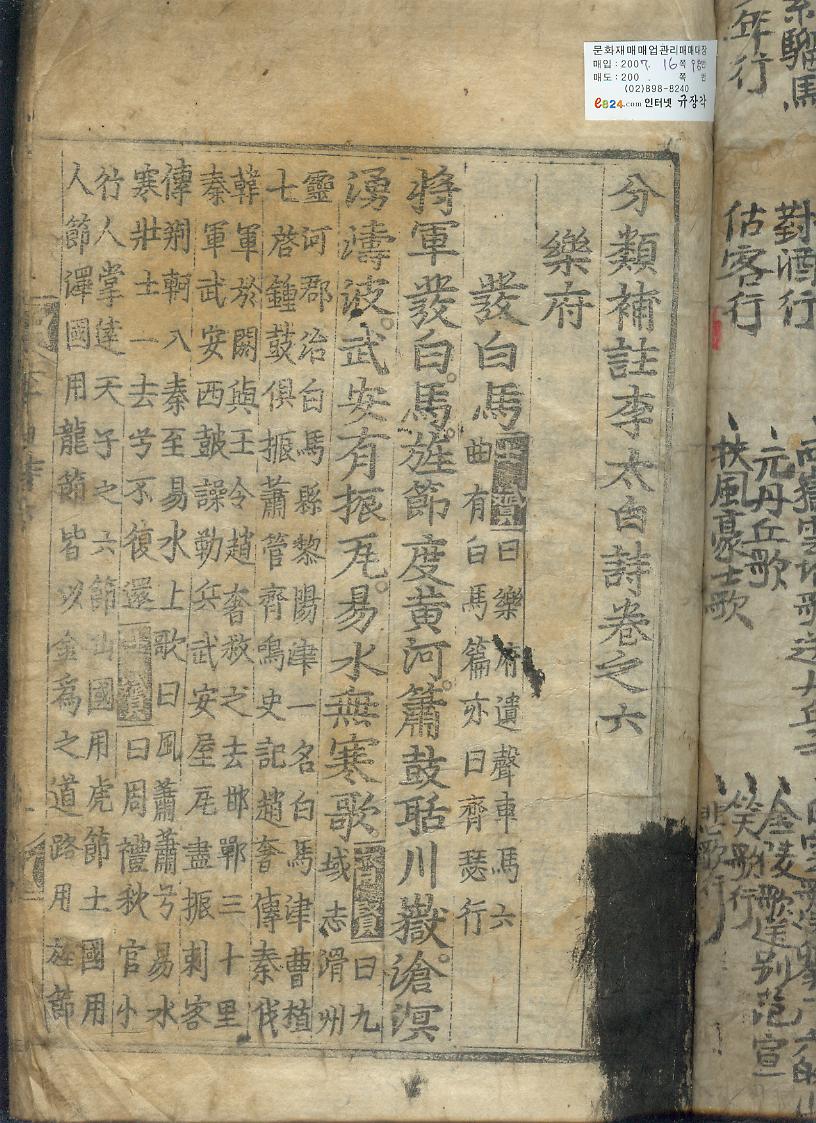 문화재매매업관리매매대장
매입:2007. 16쪽 98번
매도:200 . 쪽 번
(02)898-8240
e824.com 인터넷 규장각
分類補註李太白詩卷之六
樂府
發白馬
齊賢曰樂府遺聲車馬六
曲有白馬篇亦曰齊瑟行
將軍發白馬。旌節度黃河。簫鼓聒川嶽。滄溟
湧濤波。武安有振瓦。易水無寒歌
齊賢曰九
域志滑州
靈河郡治白馬縣黎陽津一名白馬津曹植
七啓鍾鼓俱振簫管齊鳴史記趙奢傳秦伐
韓軍於閼與王令趙奢救之去邯鄲三十里
秦軍武安西鼓譟勒兵武安屋瓦盡振刺客
傳荊軻入秦至易水上歌曰風蕭蕭兮易水
寒壯士一去兮不復還士贇曰周禮秋官小
行人掌達天子之六節山國用虎節土國用
人節澤國用龍節皆以金爲之道路用旌節
紫騮馬
行
對酒行
估客行
元丹丘歌
扶風豪士歌
金陵歌送别范宣
笑歌行
悲歌行